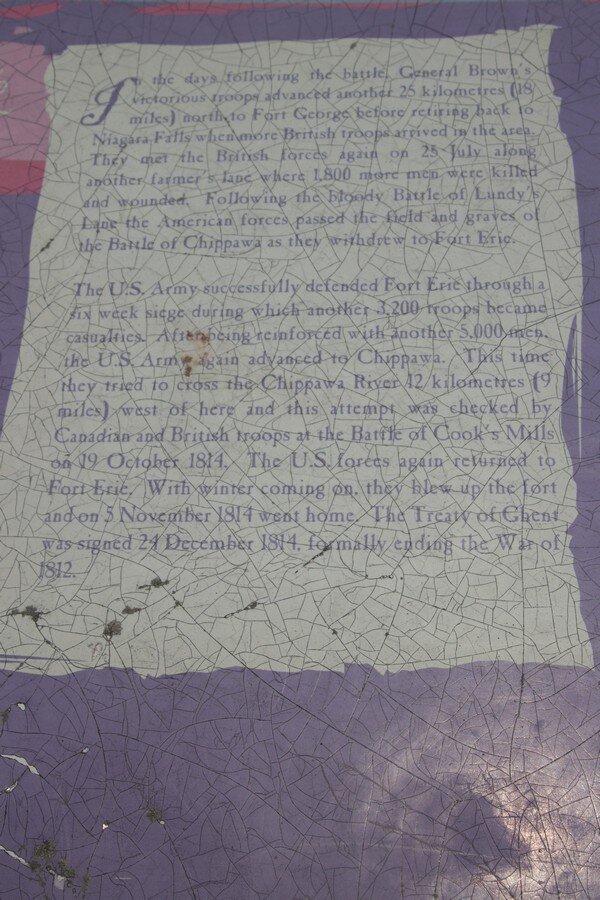 In the days following the battle, General Brown's
victorious troops advanced another 25 kilometres (18
miles) north to Fort George before retiring back to
Niagara Falls when more British troops arrived in the area.
They met the British forces again on 25 July along
another farmer's lane where 1,800 more men were killed
and wounded. Following the bloody Battle of Lundy's
Lane the American forces passed the field and graves of
the Battle of Chippawa as they withdrew to Fort Erie.
The U.S. Army successfully defended Fort Erie through a
six week siege during which another 3,200 troops became
casualties. After being reinforced with another 5,000 men,
the U.S. Army again advanced to Chippawa. This time
they tried to cross the Chippawa River 12 kilometres (9
miles) west of here and this attempt was checked by
Canadian and British troops at the Battle of Cook's Mills
on 19 October 1814. The U.S. forces again returned to
Fort Erie. With winter coming on, they blew up the fort
and on 5 November 1814 went home. The Treaty of Ghent
was signed 24 December 1814, formally ending the War of
1812.